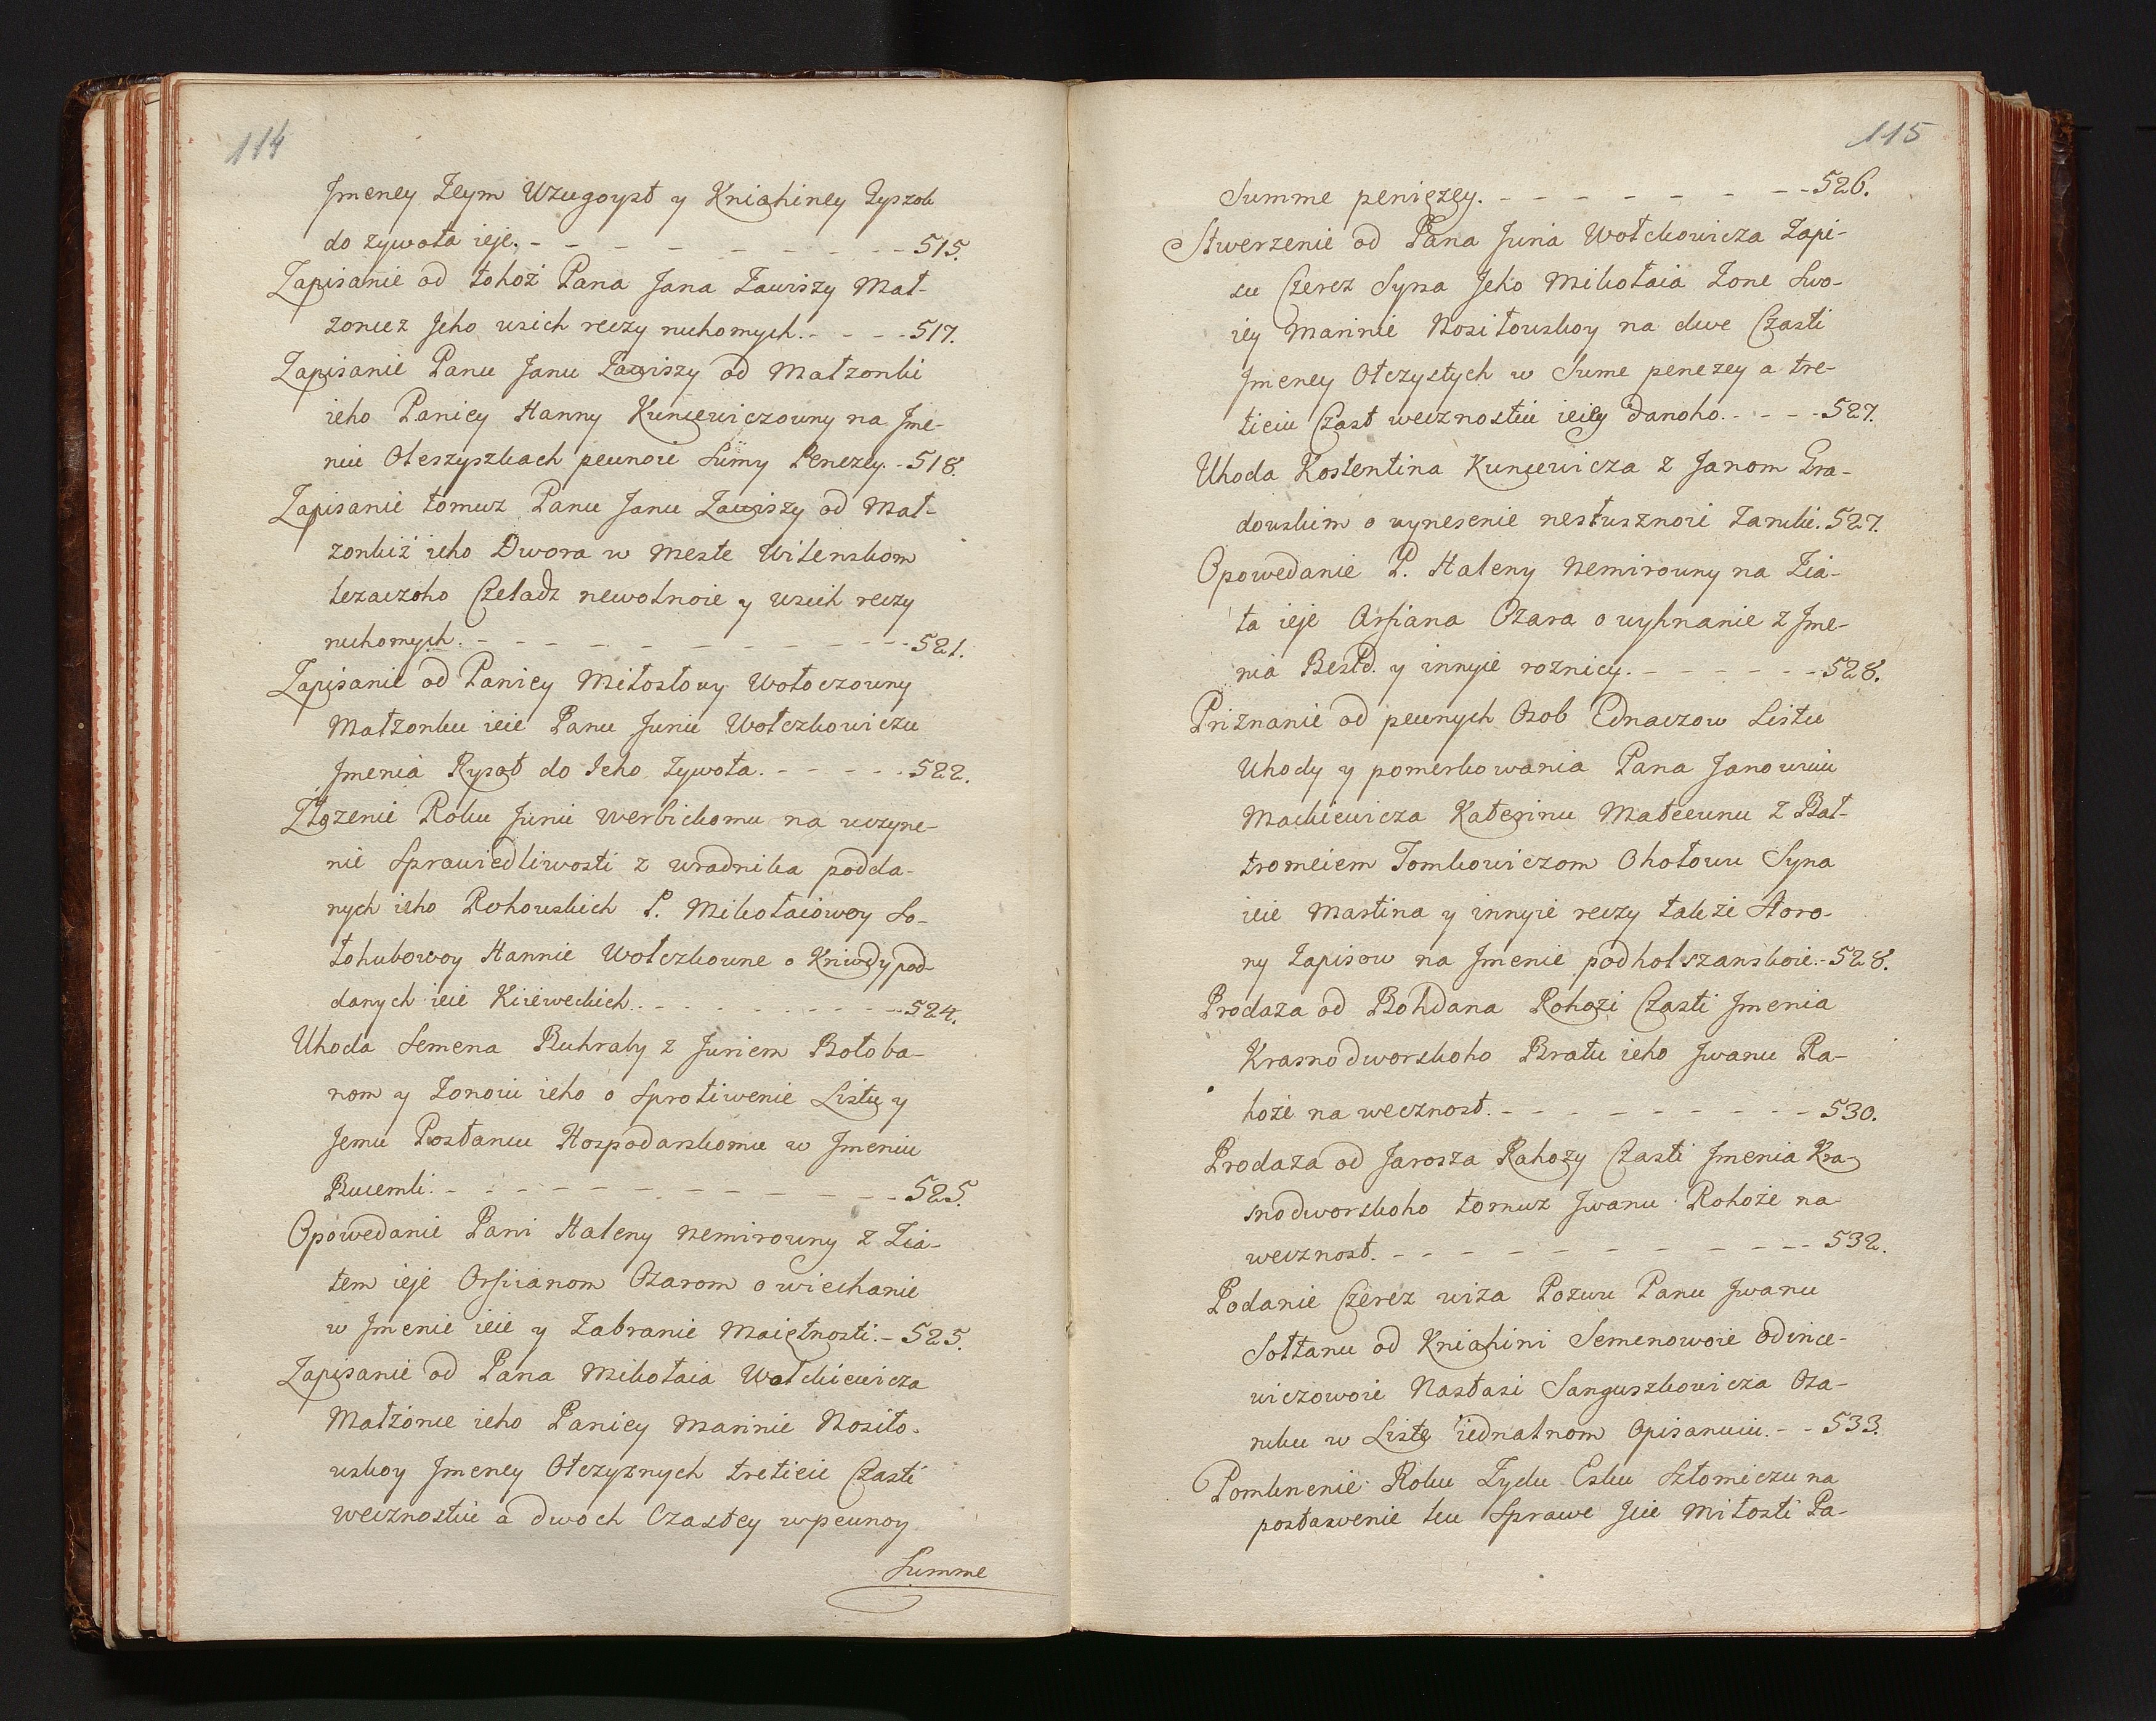 114
Jmeney Zeym Wzugoyst y Kniahiney Zyszob
do zywota ieje. - - - - - - - - 515.
Zapisanie od tohoż Pana Jana Zawiszy Mał-
zoncez Jeho wsich reczy ruchomych. - - - - 517.
Zapisanie Panu Janu Zawiszy od Małzonki
ieho Paniey Hanny Kuncewiczowny na Jme-
niu Oleszyszkach pewnoie Sumy Penezey. - 518.
Zapisanie tomuz Panu Janu Zawiszy od Mał-
zonkiż ieho Dwora w Meste Wilenskom
lezaczoho Czeladz newolnoie y wsich reczy
ruchomych. - - - - - - - - - - 521.
Zapisanie od Paniey Miłosłowy Wołoczowny
Małzonku ieie Panu Juriu Wołczkowiczu
Jmenia Rysał do Jeho Zywota. - - - - - 522.
Złozenie Roku Juriu Werbickomu na uczyne-
nie Sprawiedliwosti z uradnika podda-
nych ieho Rohowskich P. Mikołaiowoy So-
łohubowoy Hannie Wołczkowne o Kriwdy pod-
danych ieie Kiieweckich. - - - - - - - 524.
Uhoda Semena Ruhraby z Juriem Bołoba-
nom y Zonoiu ieho o Sprotiwenie Listu y
Jemu Posłancu Hospodarskomu w Jmeniu
Bucemli. - - - - - - - - - - 525.
Opowedanie Pani Haleny Nemirowny z Zia-
tem ieje Orfiianom Ozarom o wiechanie
w Jmenie ieie y Zabranie Maiętnosti. - 525.
Zapisanie od Pana Mikołaia Wołckiewicza
Małżonce ieho Paniey Marinie Nosiło-
wskoy Jmeney Otczyznych treticiu Czasti
wecznostiu a dwoch Czastey w pewnoy
Summe
115
Summe penięzey. - - - - - - - - 526.
Stwerzenie od Pana Juria Wołckowicza Zapi-
su Czerez Syna Jeho Mikołaia Zone Swo-
iey Marinie Nosiłowskoy na dwe Czasti
Jmeney Otczystych w Sume penezey a tre-
ticiu Czast wecznostiu ieiey danoho. - - - - 527.
Uhoda Kostentina Kuncewicza z Janom Gra-
dowskim o wynesenie nesłusznoie Zamki. 527.
Opowedanie P. Haleny Nemirowny na Zia-
ta ieje Arfiana Ozara o wyhnanie z Jme-
nia Besłd. y innyie roznicy. - - - - - - 528.
Priznanie od pewnych Osob Ednaczow Listu
Uhody y pomerkowania Pana Janowuiu
Mackiewicza Katerinu Matceunu z Bal-
tromeiem Tomkowiczom Ohołowu Syna
ieie Martina y innyie reczy także Storo-
ny Zapisow na Jmenie podholszanskoie. - 528.
Prodaza od Bohdana Rohozi Czasti Jmenia
Krasnodworskoho Bratu ieho Jwanu Ra-
hoże na wecznost. - - - - - - - - 530.
Prodaza od Jarosza Rahozy Czasti Jmenia Kra-
snodworskoho tomuz Jwanu Rohoże na
wecznost. - - - - - - - - - - 532.
Podanie Czerez wiża Pozwu Panu Jwanu
Sołtanu od Kniahini Semenowoie Odince-
wiczowoie Nastasi Sanguszkowicza Oza-
ruku w Liste iednalnom Opisanuiu. - - 533.
Pomknenie Roku Zydu Esku Szłomiczu na
postawenie ku Sprawe Jeie Miłosti Pa-